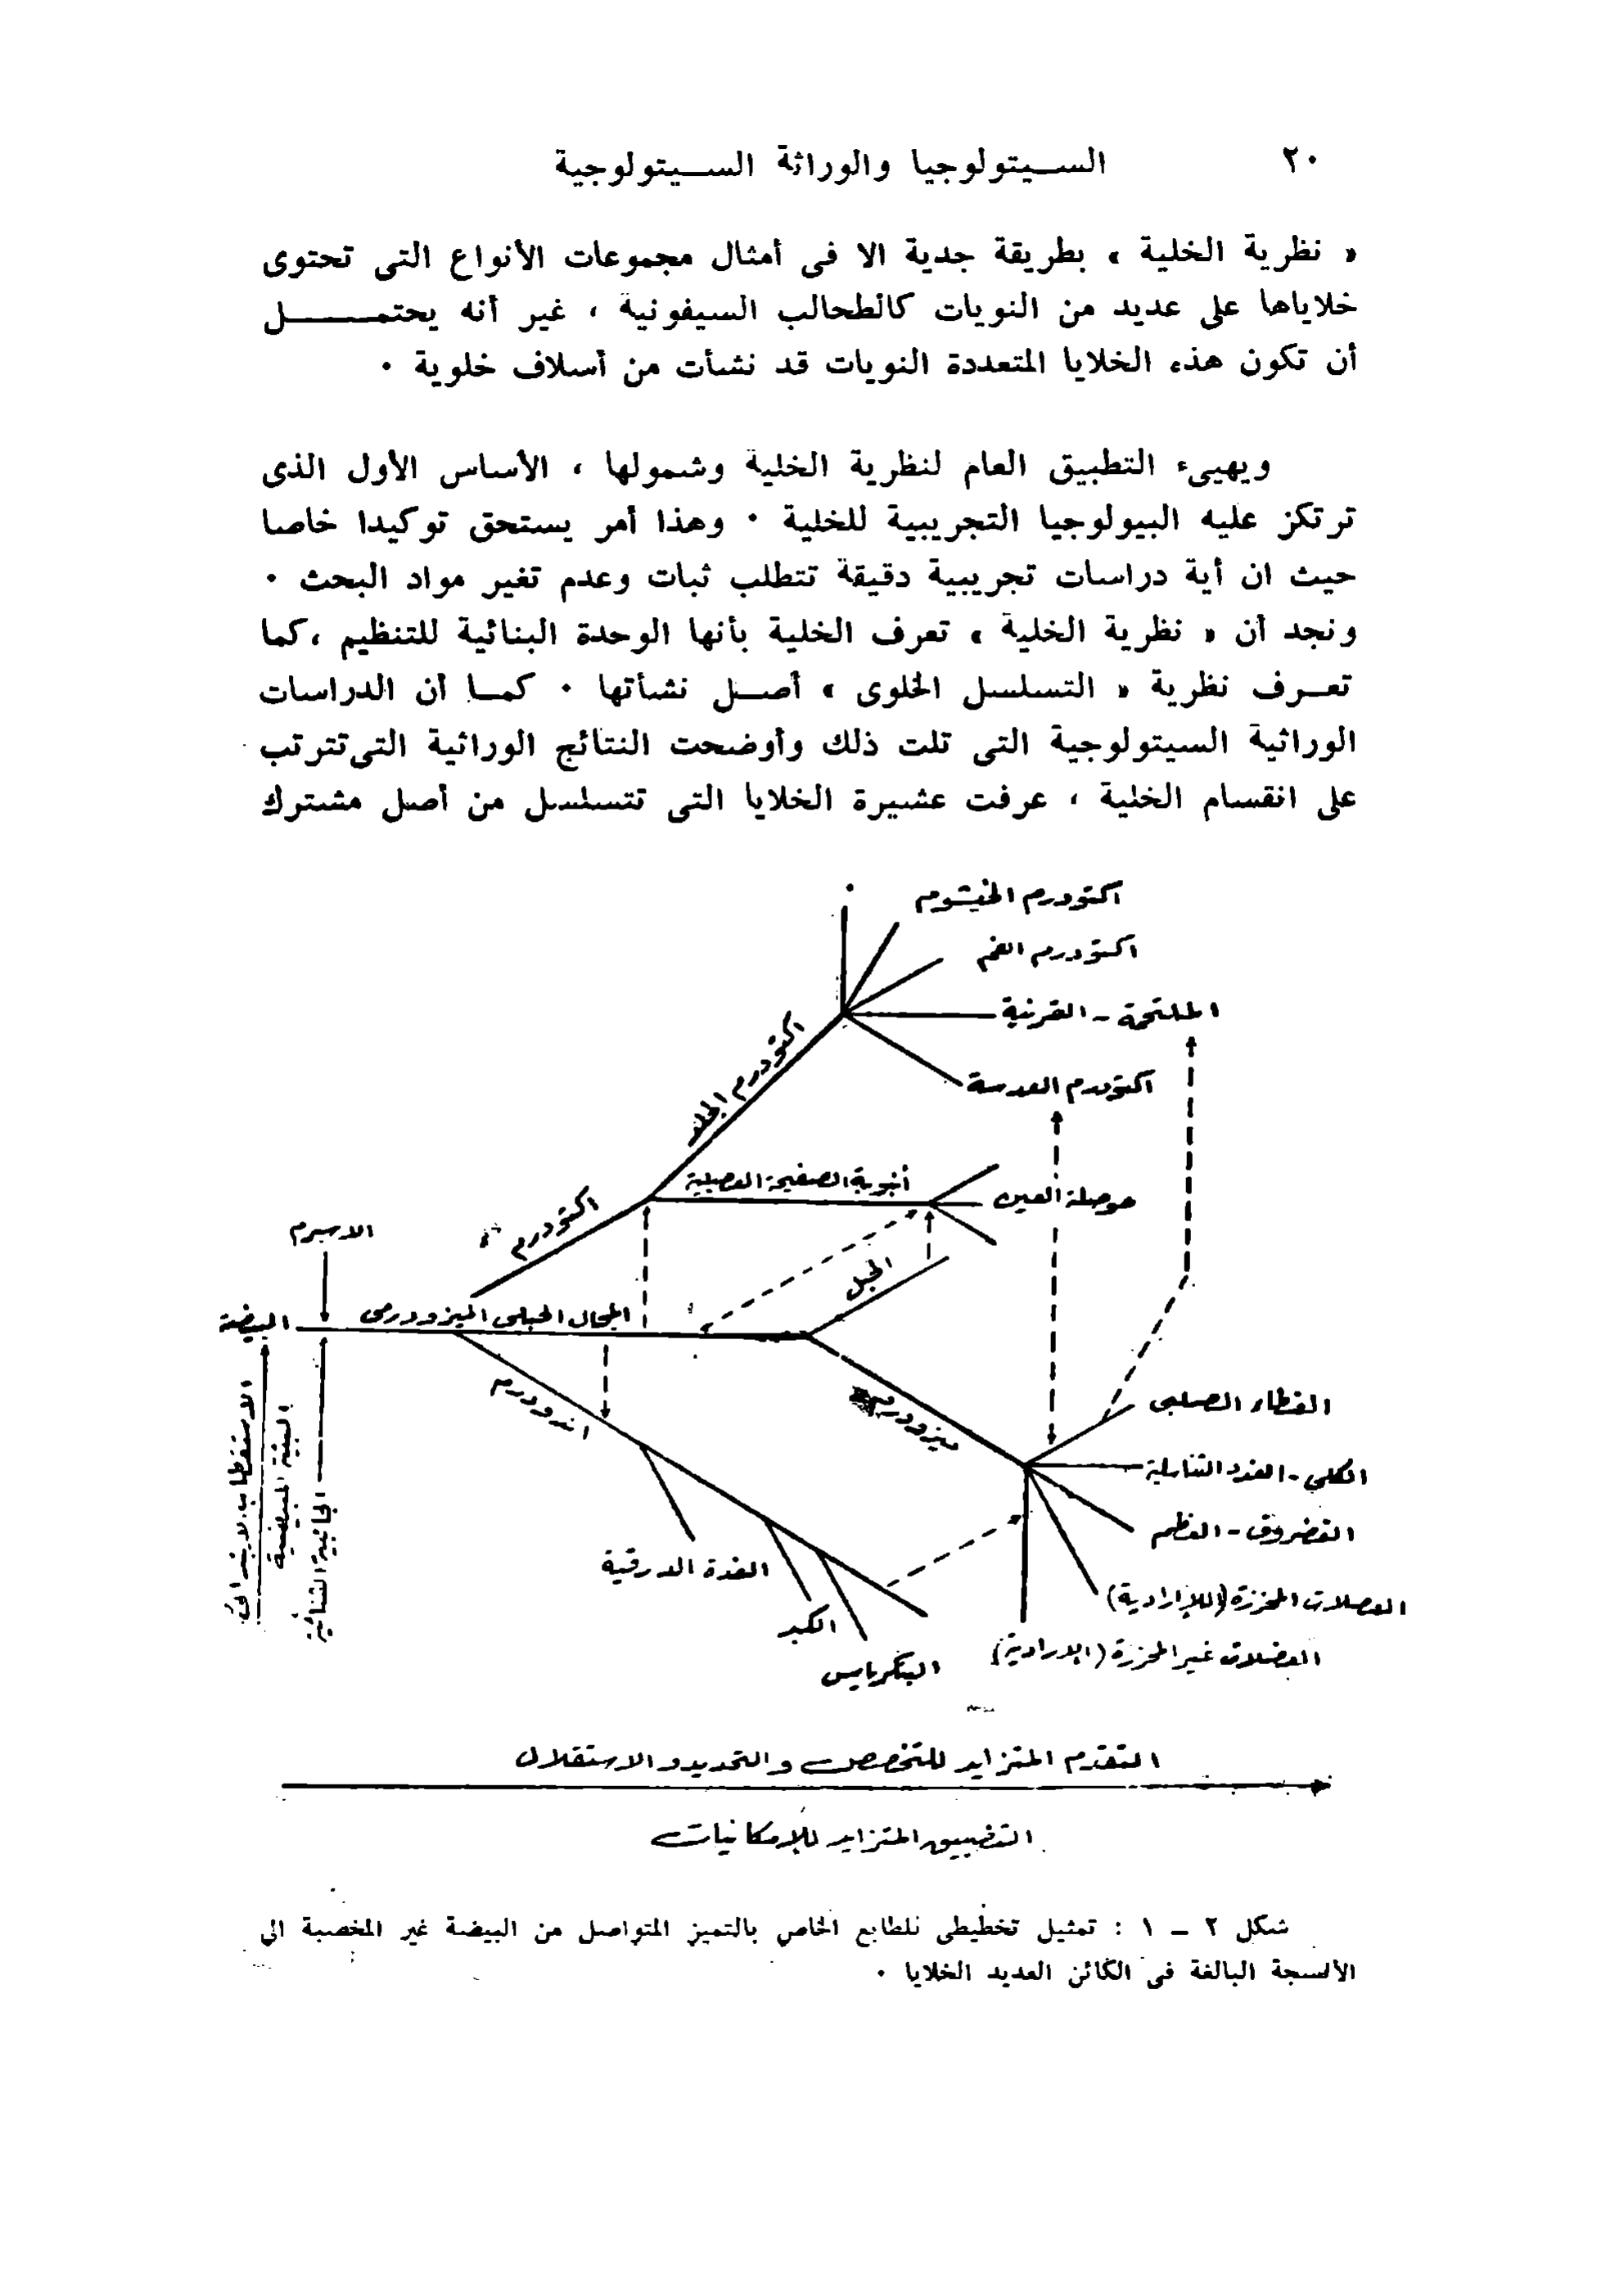 ٢٠ السـيتولوجيا والوراثة السـيتولوجية
« نظرية الخلية » بطريقة جدية الا فى أمثال مجموعات الأنواع التى تحتوى
خلاياها على عديد من النويات كالطحالب السيفونية ، غير أنه يحتمـــــل
أن تكون هذه الخلايا المتعددة النويات قد نشأت من أسلاف خلوية ٠
ويهيىء التطبيق العام لنظرية الخلية وشمولها ، الأساس الأول الذى
ترتكز عليه البيولوجيا التجريبية للخلية ٠ وهذا أمر يستحق توكيدا خاصا
حيث ان أية دراسات تجريبية دقيقة تتطلب ثبات وعدم تغير مواد البحث ٠
ونجد أن « نظرية الخلية » تعرف الخلية بأنها الوحدة البنائية للتنظيم ،كما
تعـرف نظرية « التسلسل الخلوى » أصـل نشأتها ٠ كمـا أن الدراسات
الوراثية السيتولوجية التى تلت ذلك وأوضحت النتائج الوراثية التى تترتب
على انقسام الخلية ، عرفت عشيرة الخلايا التى تتسلسل من أصل مشترك
اكتودرم الخيشوم
اكتودرم الفم
الملتحمة - القرنية
اكتودرم العدسة
اكتودرم الجلد
أنبوبة الصفيحة العصبية
حوصلة العين
اكتودرم
الاسبرم
الحبل
المجال الحبلى الميزودرمى
البيضة
اندودرم
ميزودرم
الغطاء الصلبى
الكلى - الغدد التناسلية
الغضروف - العظم
العضلات المخززة (اللاإرادية)
العضلات غير المخززة (الإرادية)
الغدة الدرقية
الكبد
البنكرياس
الاستقطاب الابتدائى
البيئة المبيضية
الجانبية الثنائية
التقدم المتزايد للتخصص والتحديد والاستقلال
التضييق المتزايد للإمكانيات
شكل ٢ – ١ : تمثيل تخطيطى للطابع الخاص بالتميز المتواصل من البيضة غير المخصبة الى
الأنسجة البالغة فى الكائن العديد الخلايا ٠